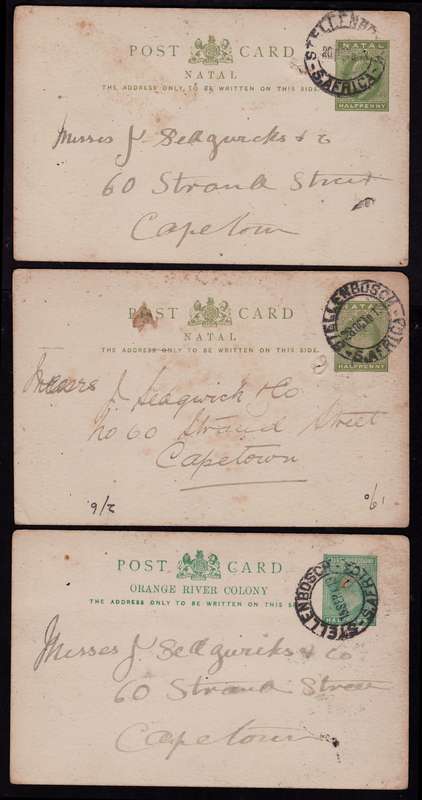 POST CARD
NATAL
THE ADDRESS ONLY TO BE WRITTEN ON THIS SIDE.
NATAL
HALFPENNY
STELLENBOSCH
S.AFRICA
Messrs J. Sedgwicks & Co
60 Strand Street
Capetown
POST CARD
NATAL
THE ADDRESS ONLY TO BE WRITTEN ON THIS SIDE.
NATAL
HALFPENNY
STELLENBOSCH
S.AFRICA
Messrs J. Sedgwick & Co
No 60 Strand Street
Capetown
POST CARD
ORANGE RIVER COLONY
THE ADDRESS ONLY TO BE WRITTEN ON THIS
STELLENBOSCH
S.AFRICA
Messrs J. Sedgwicks & Co
60 Strand Street
Capetown